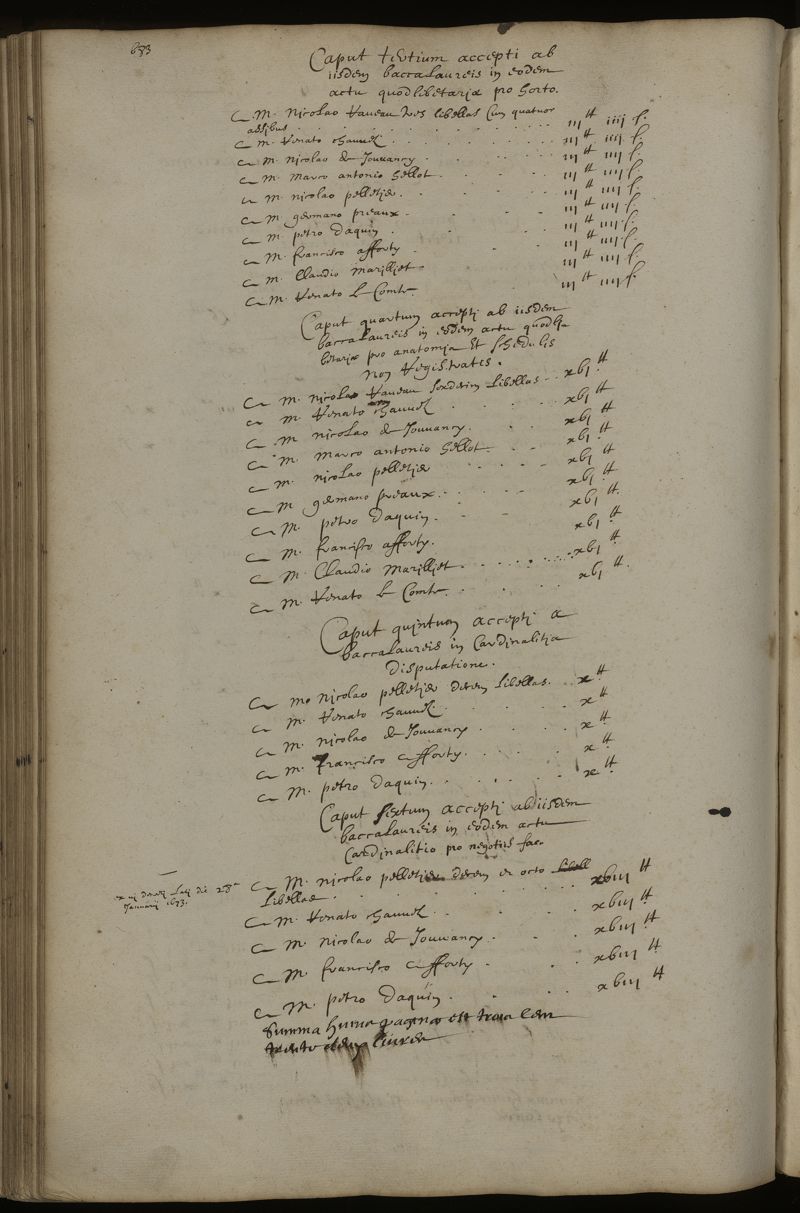 653
Caput tertium accepti ab
iisdem baccalaureis in eodem
actu quodlibetariæ pro horto.
A M. Nicolao Vaveau tres libellas cum quatuor
assibus . . . . . . iij ₶ iiij s.
A M. Renato chauvel . . . . . iij ₶ iiij s.
A M. nicolao de Jouvancy . . . iij ₶ iiij s.
A M. marco antonio hellot . . . iij ₶ iiij s.
A M. nicolao pelletier . . . iij ₶ iiij s.
A M. germano preaux . . . iij ₶ iiij s.
A M. petro Daquin . . . iij ₶ iiij s.
A M. francisco afforty . . . iij ₶ iiij s.
A M. Claudio Marilljet . . . iij ₶ iiij s.
A M. Renato le Comte . . . iij ₶ iiij s.
Caput quartum accepti ab iisdem
baccalaureis in eodem actu quodli
betariæ pro anatomia et schedulis
non registratis.
A M. nicolao Vaveau sexdecim libellas . . xvj ₶
A M. Renato chauvel . . . xvj ₶
A M. nicolao de Jouvancy . . . xvj ₶
A M. marco antonio hellot . . . xvj ₶
A M. nicolao pelletier . . . xvj ₶
A M germano preaux . . . xvj ₶
A M. petro Daquin . . . xvj ₶
A M. francisco afforty . . . xvj ₶
A M. Claudio Marilljet . . . xvj ₶
A M. Renato le Comte . . . xvj ₶
Caput quintum accepti a
baccalaureis in Cardinalitia
disputatione.
A mo nicolao pelletier decem libellas . . x ₶
A M. Renato chauvel . . . x ₶
A M. nicolao de Jouvancy . . . x ₶
A M. Francisco Afforty . . . x ₶
A M. petro Daquin . . . x ₶
Caput sextum accepti ab iisdem
baccalaureis in eodem actu
Cardinalitio pro negotiis fac.
die 28a
Januarii 1673.
A M. nicolao pelletier decem et octo libell
libellas . . . xviij ₶
A M. Renato chauvel . . . xviij ₶
A M. nicolao de Jouvancy . . . xviij ₶
A M. francisco Afforty . . . xviij ₶
A M. petro Daquin . . . xviij ₶
Summa hujus paginæ est trois cent
trente deux livres